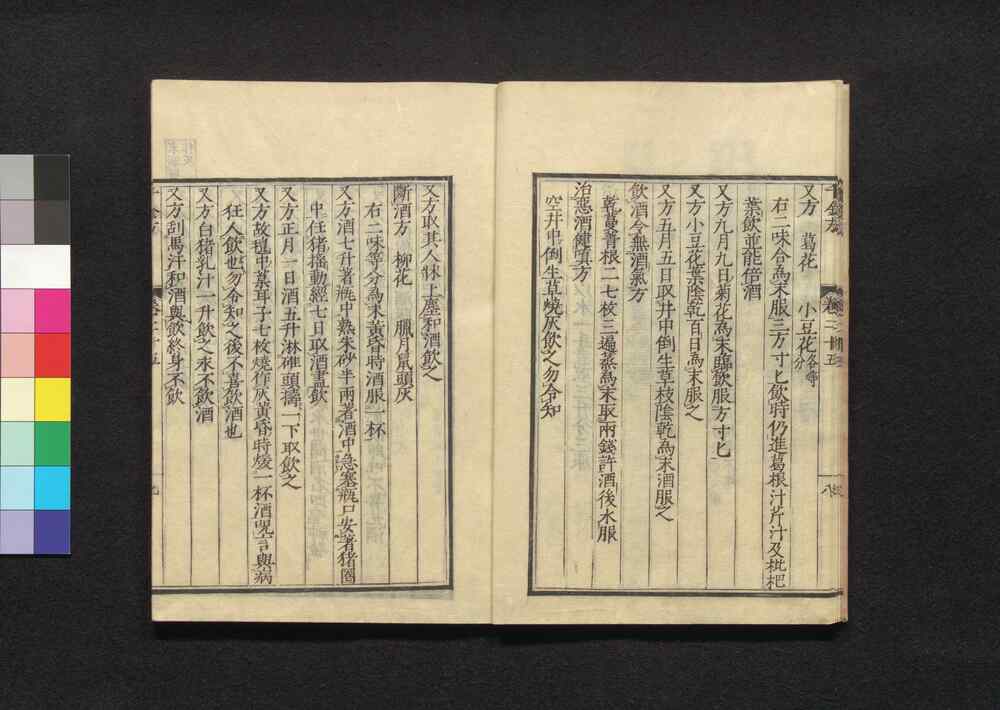 千金方 卷二十五 八
又方 葛花 小豆花各等分
右二味合為末服三方寸匕飲時仍進葛根汁芹汁及枇杷
葉飲並能倍酒
又方九月九日菊花為末臨飲服方寸匕
又方小豆花葉陰乾百日為末服之
又方五月五日取井中倒生草枝陰乾為末酒服之
飲酒令無酒氣方
乾蔓菁根二七枚三遍蒸為末取兩錢許酒後水服
治惡酒健嗔方
空井中倒生草燒灰飲之勿令知
又方取其人牀上塵和酒飲之
斷酒方 柳花 臘月鼠頭灰
右二味等分為末黃昏時酒服一杯
又方酒七升著瓶中熟朱砂半兩著酒中急塞瓶口安著猪圈
中任猪搖動經七日取酒盡飲
又方正月一日酒五升淋碓頭擣一下取飲之
又方故氊中菜耳子七枚燒作灰黃昏時煖一杯酒咒言與病
狂人飲也勿令知之後不喜飲酒也
又方白猪乳汁一升飲之永不飲酒
又方刮馬汗和酒與飲終身不飲
千金方 卷二十五 九